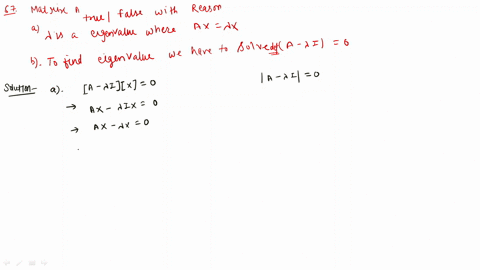 67. Matrix A true/false with Reason
a) λ is a eigenvalue where AX = λX
b). To find eigenvalue we have to solve det(A - λI) = 0
Solution:- a). [A - λI][X] = 0 |A - λI| = 0
→ AX - λIX = 0
→ AX - λX = 0